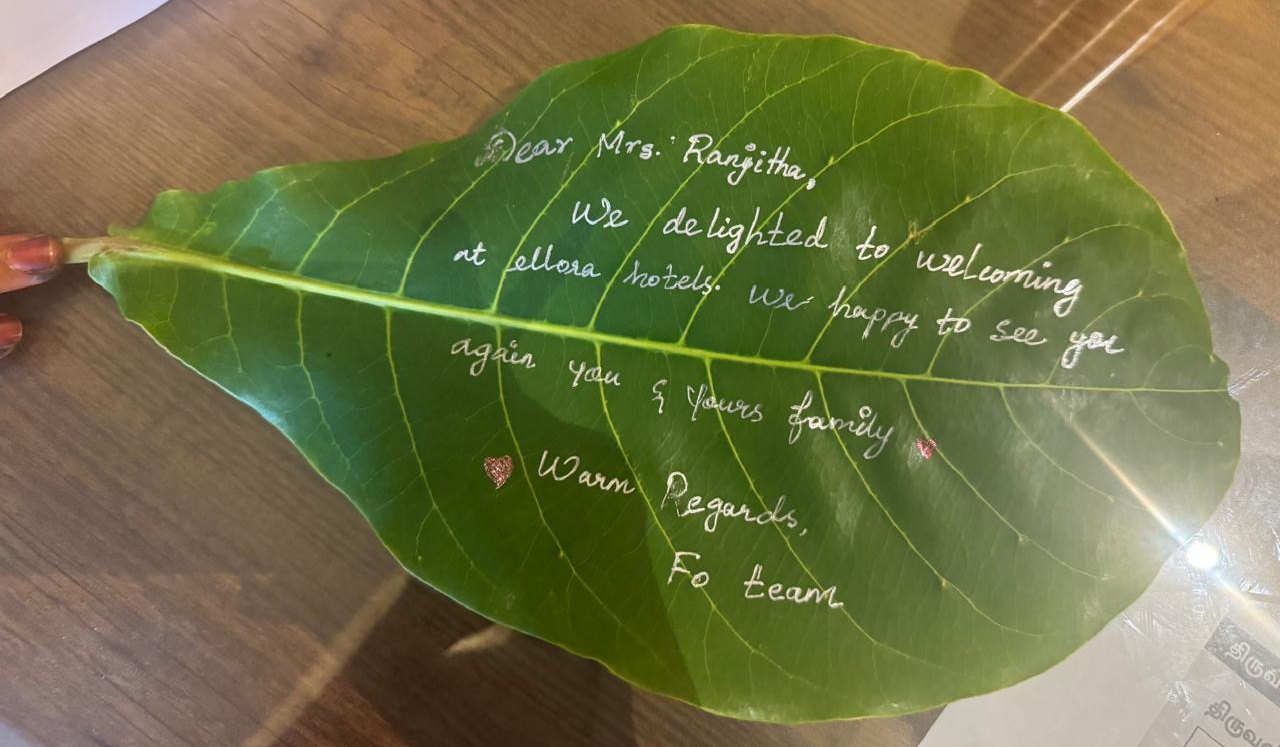 Dear Mrs. Ranjitha,
We delighted to welcoming
at ellora hotels. We happy to see you
again you & yours family
Warm Regards,
Fo team